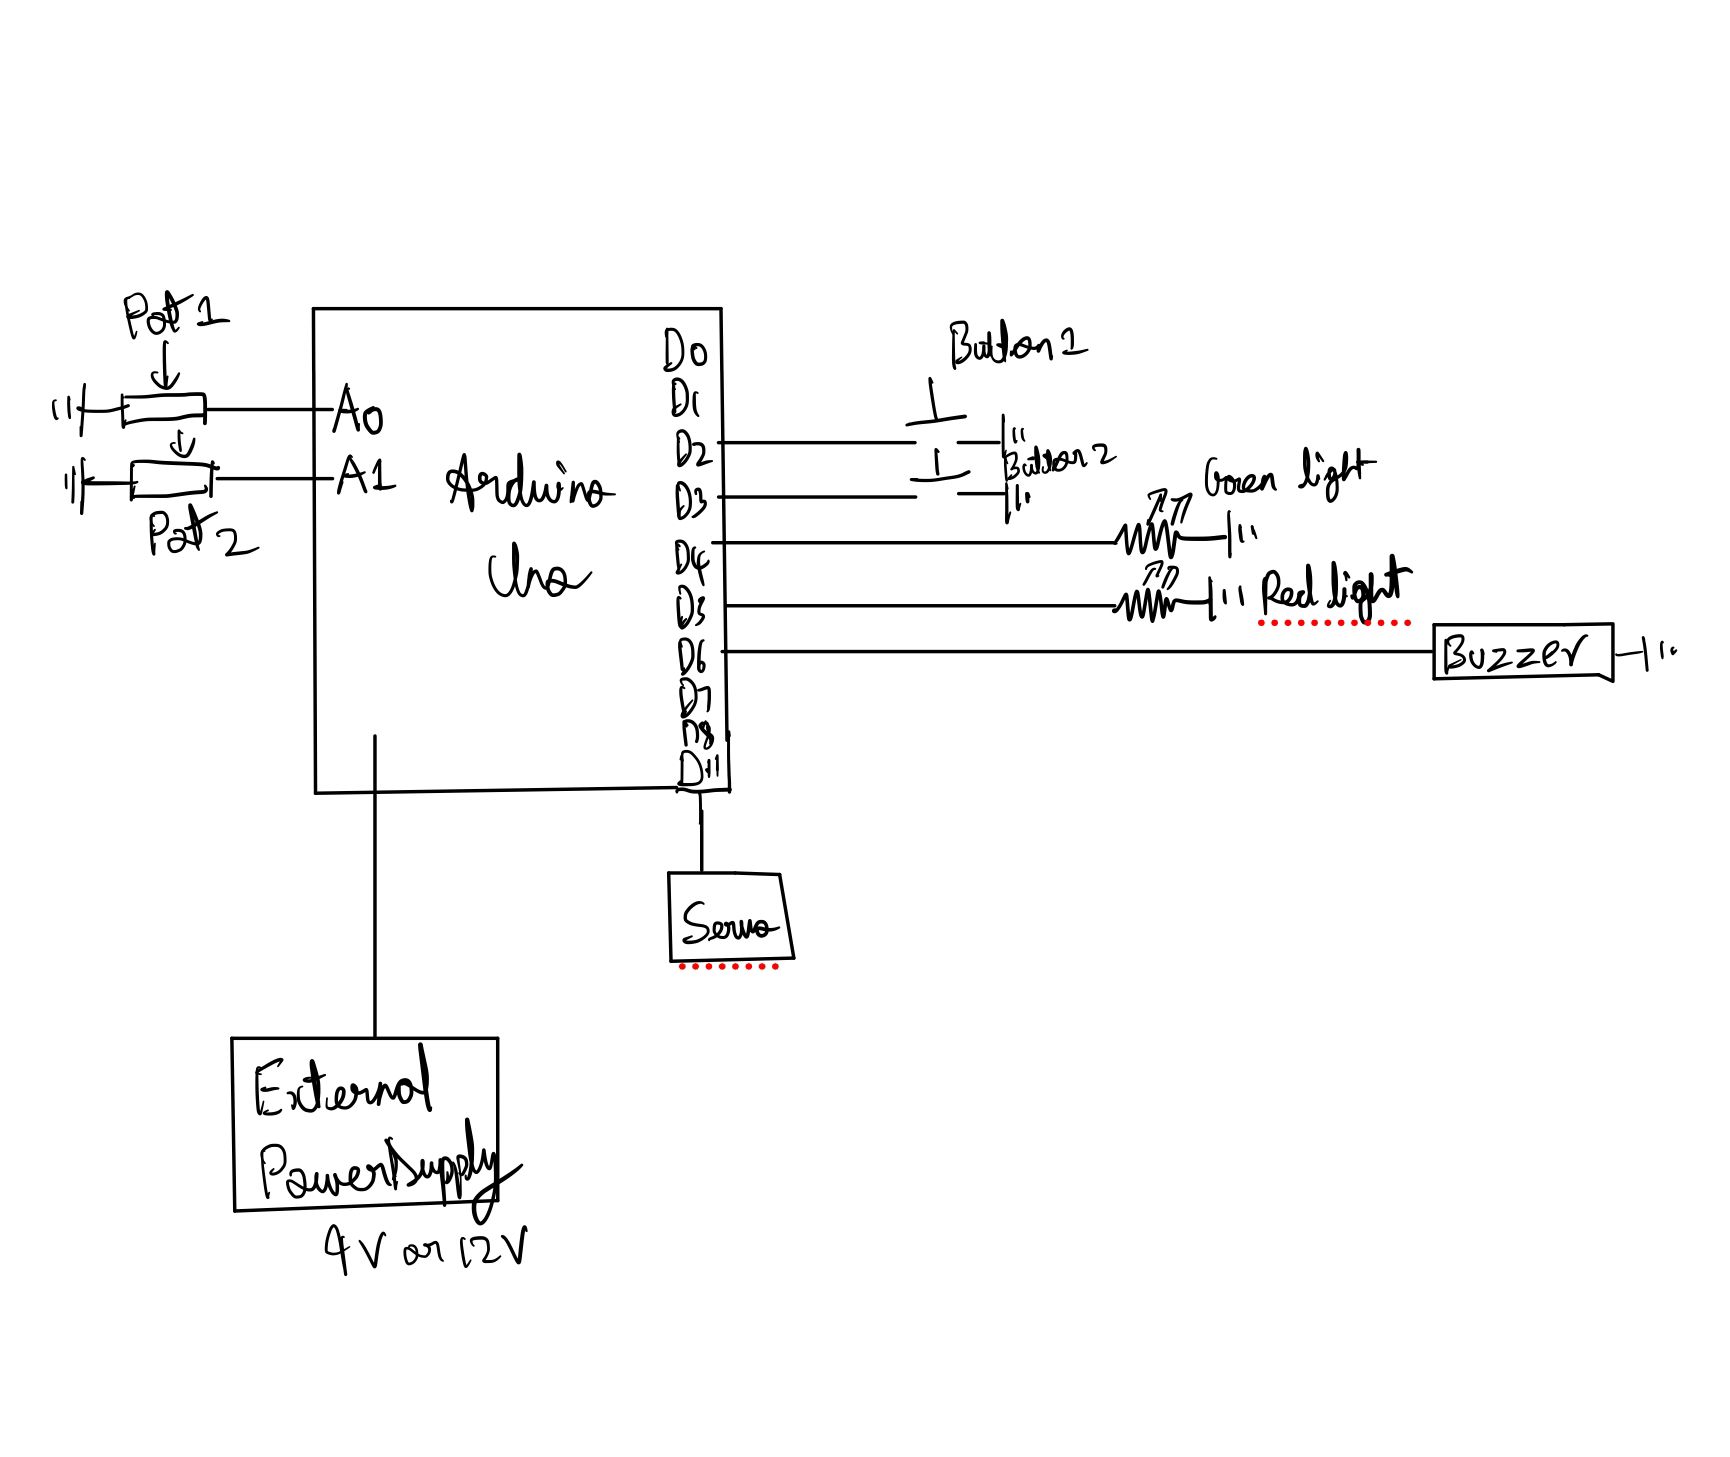 Pot 1
A0
A1
Pot 2
Arduino
Uno
D0
D1
D2
D3
D4
D5
D6
D7
D8
D11
Button 1
Button 2
Green light
Red light
Buzzer
Servo
External
Power Supply
9V or 12V